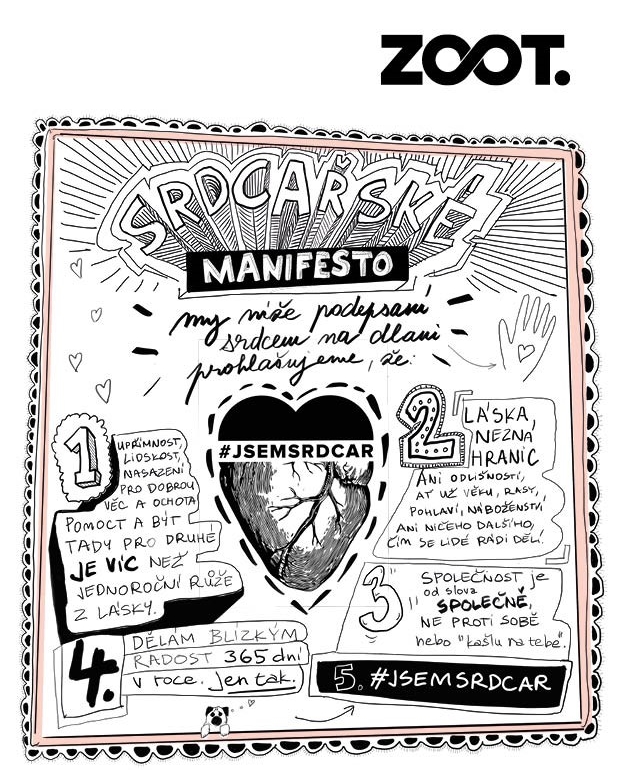 ZOOT.
SRDCAŘSKÉ
MANIFESTO
my níže podepsaní
srdcem na dlani
prohlašujeme, že:
1
UPŘÍMNOST,
LIDSKOST,
NASAZENÍ
PRO DOBROU
VĚC A OCHOTA
POMOCT A BÝT
TADY PRO DRUHÉ
JE VÍC NEŽ
JEDNOROČNÍ RŮŽE
Z LÁSKY.
#JSEMSRDCAR
2
LÁSKA,
NEZNÁ
HRANIC
ANI ODLIŠNOSTÍ,
AŤ UŽ VĚKU, RASY,
POHLAVÍ, NÁBOŽENSTVÍ
ANI NIČEHO DALŠÍHO,
ČÍM SE LIDÉ RÁDI DĚLÍ.
3
SPOLEČNOST je
od slova
SPOLEČNĚ,
NE PROTI SOBĚ
nebo "kašlu na tebe".
4.
DĚLÁM BLÍZKÝM
RADOST 365 dní
v roce. Jen tak.
5. #JSEMSRDCAŘ